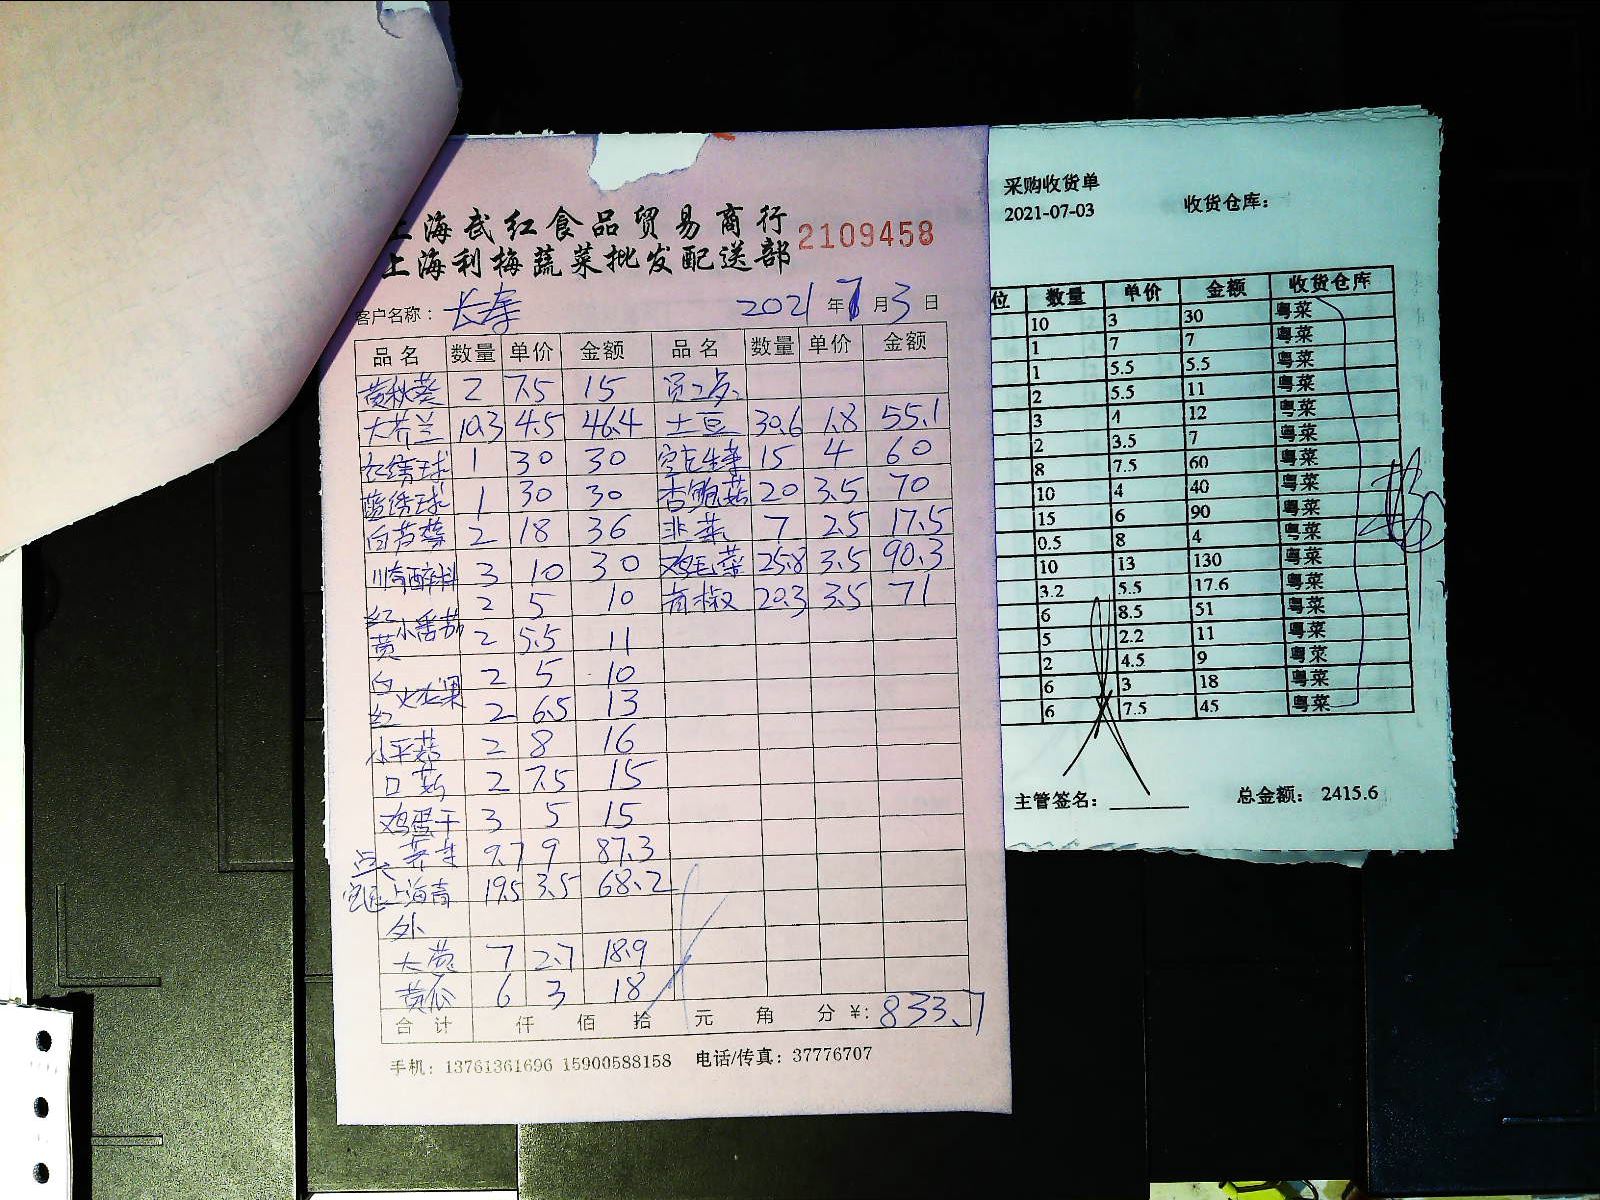 上海武红食品贸易商行
上海利梅蔬菜批发配送部
2109458
客户名称: 长寿 2021年7月3日
品名 数量 单价 金额 品名 数量 单价 金额
黄秋葵 2 7.5 15 员工点
大芥兰 10.3 4.5 46.4 土豆 30.6 1.8 55.1
红绣球 1 30 30 生菜 15 4 60
蓝绣球 1 30 30 杏鲍菇 20 3.5 70
白芦笋 2 18 36 韭菜 7 2.5 17.5
3 10 30 鸡毛菜 25.8 3.5 90.3
红 小番茄 2 5 10 青椒 20.3 3.5 71
黄 2 5.5 11
白 火龙果 2 5 10
红 2 6.5 13
小平菇 2 8 16
口菇 2 7.5 15
鸡蛋干 3 5 15
点 芥菜 9.7 9 87.3
上海青 19.5 3.5 68.2
外
大葱 7 2.7 18.9
黄瓜 6 3 18
合计 仟 佰 拾 元 角 分 ¥: 833.7
手机: 13761361696 15900588158 电话/传真: 37776707
采购收货单
2021-07-03 收货仓库:
位 数量 单价 金额 收货仓库
10 3 30 粤菜
1 7 7 粤菜
1 5.5 5.5 粤菜
2 5.5 11 粤菜
3 4 12 粤菜
2 3.5 7 粤菜
8 7.5 60 粤菜
10 4 40 粤菜
15 6 90 粤菜
0.5 8 4 粤菜
10 13 130 粤菜
3.2 5.5 17.6 粤菜
6 8.5 51 粤菜
5 2.2 11 粤菜
2 4.5 9 粤菜
6 3 18 粤菜
6 7.5 45 粤菜
主管签名: 总金额: 2415.6